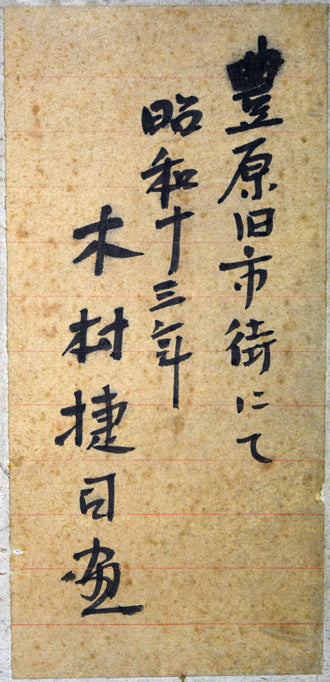 豊原旧市街にて
昭和十三年
木村捷司画